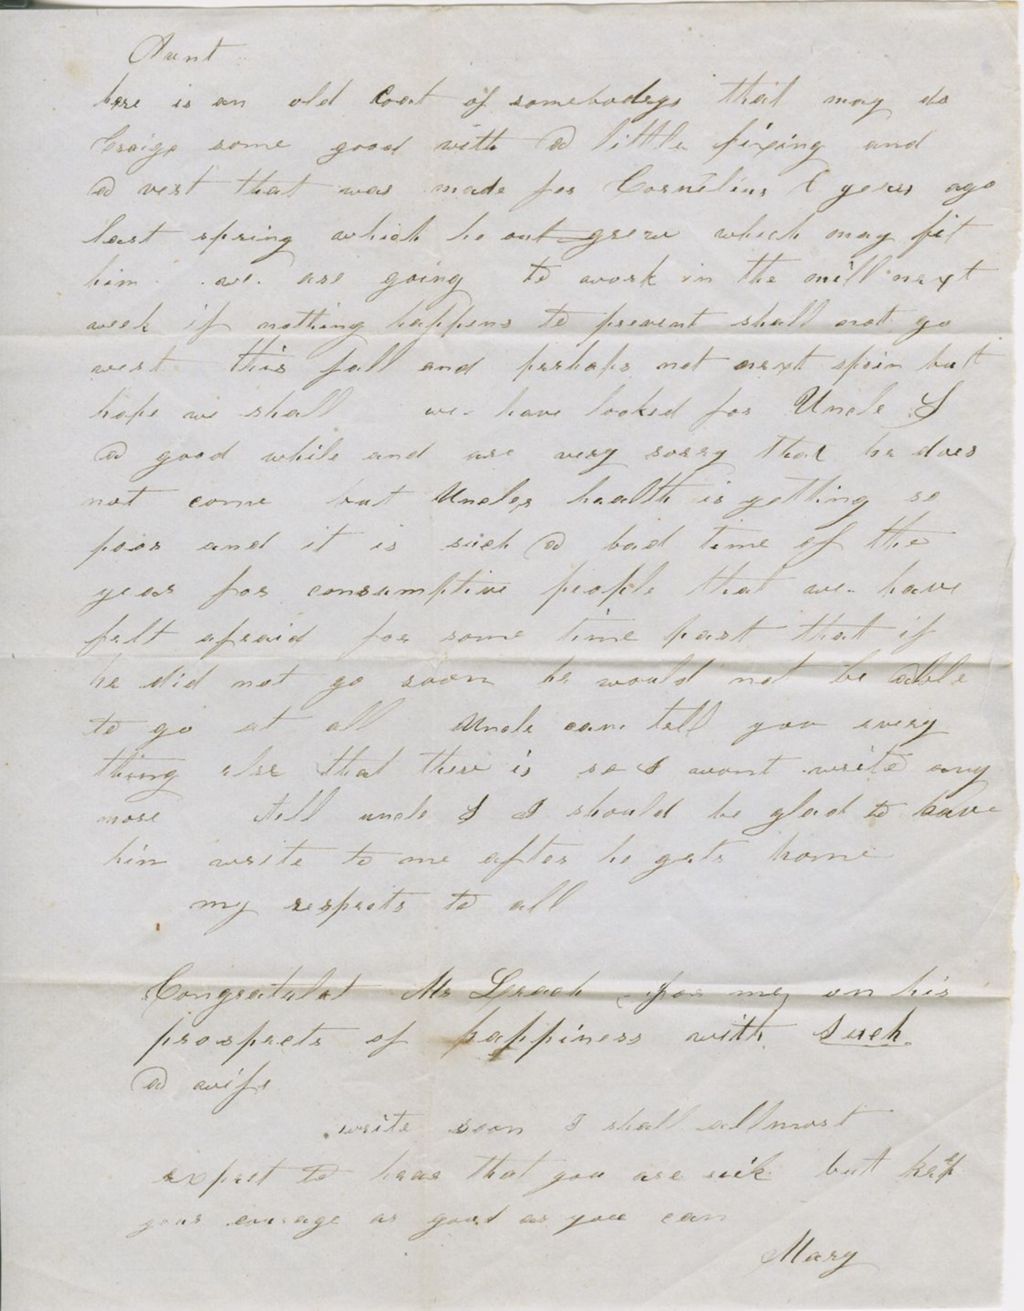 Aunt
here is an old Coat of somebodys that may do
Craigs some good with a little fixing and
a vest that was made for Cornelius years ago
last spring which he out grew which may fit
him we are going to work in the mill next
week if nothing happens to prevent shall not go
west this fall and perhaps not next sprin but
hope we shall we have looked for Uncle S
a good while and are very sorry that he does
not come but Uncles health is getting so
poor and it is such a bad time of the
year for consumptive people that we have
felt afraid for some time past that if
he did not go soon he would not be able
to go at all Uncle can tell you every
thing else that there is so I wont write any
more tell uncle S I should be glad to have
him write to me after he gets home
my respects to all
Congratulat Mr Leach for me on his
prospects of happiness with such
a wife
write soon I shall allmost
expect to hear that you are sick but keep
your courage as good as you can
Mary